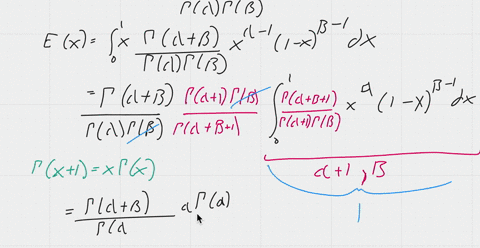 Γ(α)Γ(β)
E(x) = ∫₀¹ x Γ(α+β)/Γ(α)Γ(β) x^(α-1) (1-x)^(β-1) dx
= Γ(α+β)/Γ(α)Γ(β) Γ(α+1)Γ(β)/Γ(α+β+1) ∫₀¹ Γ(α+β+1)/Γ(α+1)Γ(β) x^α (1-x)^(β-1) dx
Γ(x+1) = xΓ(x)
α+1, β
= Γ(α+β)/Γ(α αΓ(α)
1